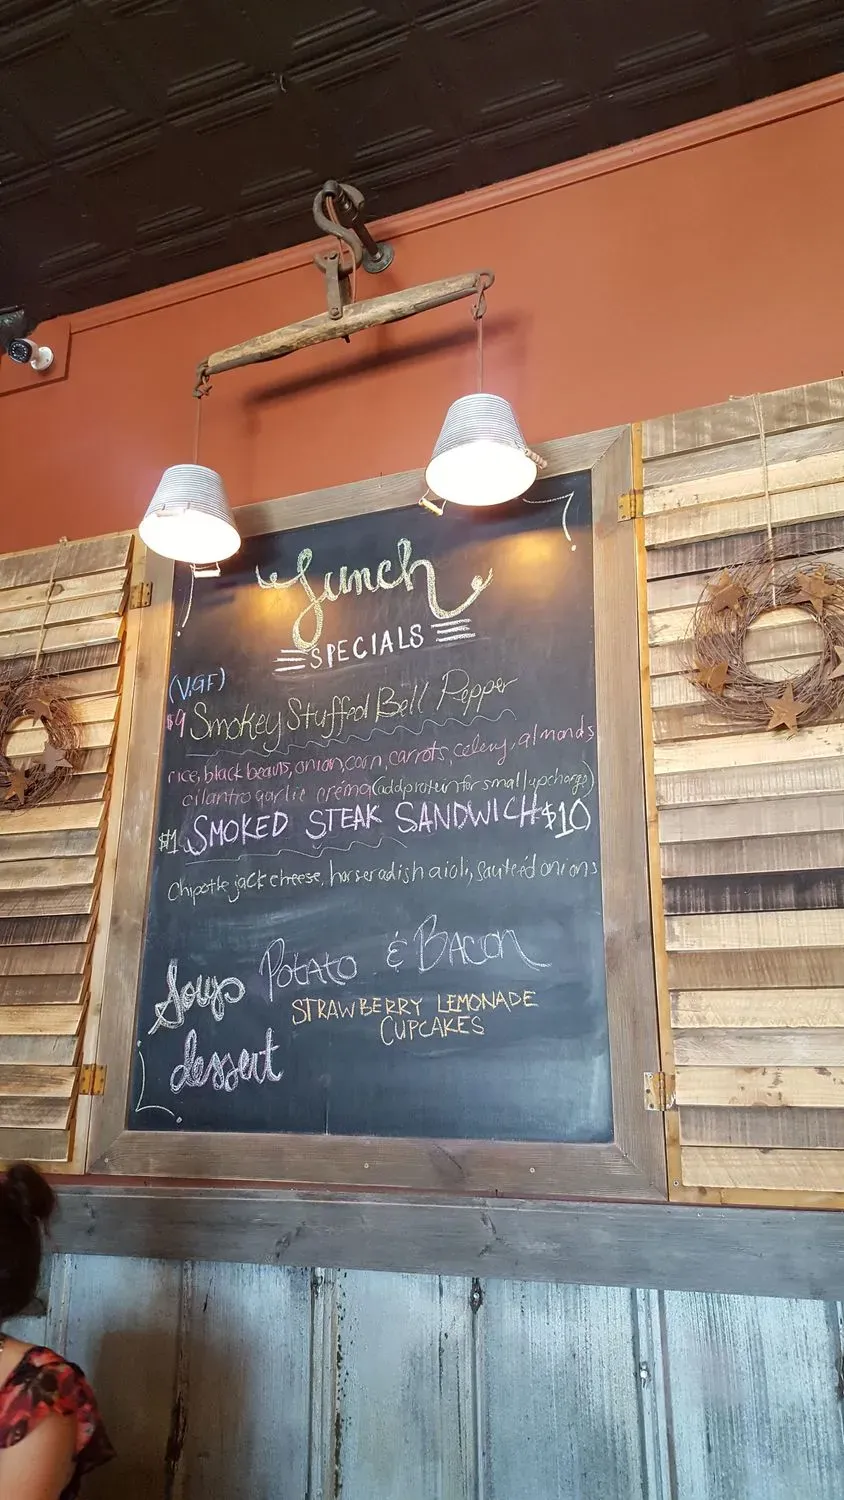 Lunch
SPECIALS
(V,GF)
$9 Smokey Stuffed Bell Pepper
rice, black beans, onion, corn, carrots, celery, almonds
cilantro garlic créma (add protein for small upcharge)
$1 SMOKED STEAK SANDWICH $10
Chipotle jack cheese, horseradish aioli, sauteéd onions
Soup Potato & Bacon
STRAWBERRY LEMONADE
CUPCAKES
dessert